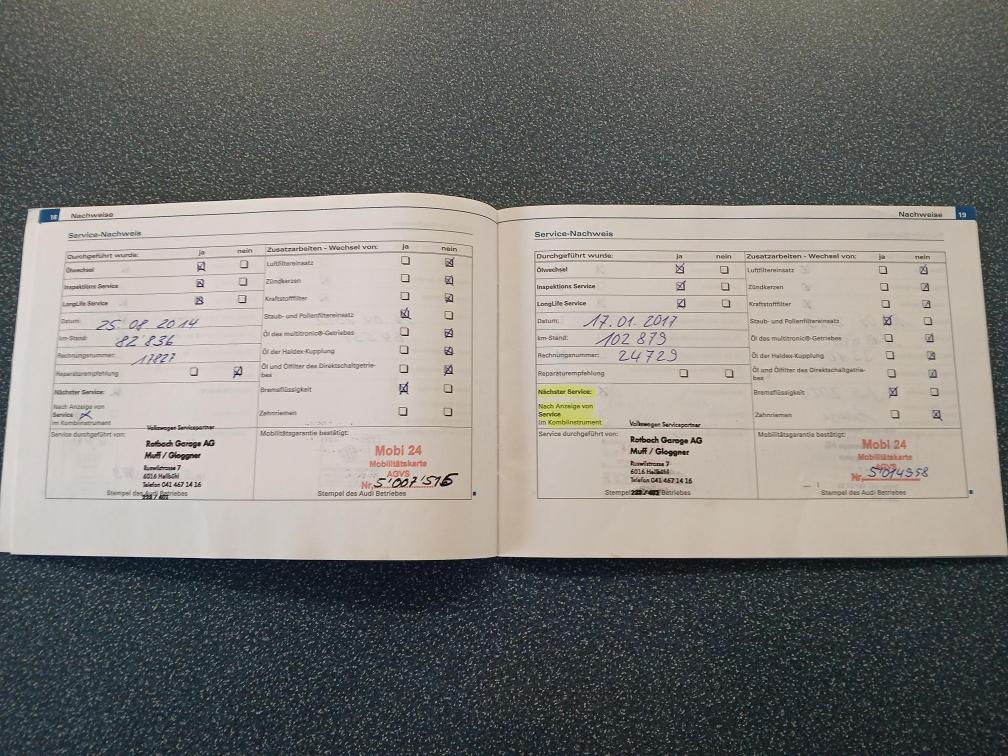 18 Nachweise
Service-Nachweis
Durchgeführt wurde: ja nein
Ölwechsel
Inspektions Service
LongLife Service
Datum: 25 08 2014
km-Stand: 82'836
Rechnungsnummer: 17827
Reparaturempfehlung
Nächster Service:
Nach Anzeige von
Service
im Kombiinstrument
Zusatzarbeiten - Wechsel von: ja nein
Luftfiltereinsatz
Zündkerzen
Kraftstofffilter
Staub- und Pollenfiltereinsatz
Öl des multitronic®-Getriebes
Öl der Haldex-Kupplung
Öl und Ölfilter des Direktschaltgetrie-
bes
Bremsflüssigkeit
Zahnriemen
Service durchgeführt von:
Volkswagen Servicepartner
Rotbach Garage AG
Muff / Gloggner
Ruswilstrasse 7
6016 Hellbühl
Telefon 041 467 14 16
Stempel des Audi Betriebes
Mobilitätsgarantie bestätigt:
Mobi 24
Mobilitätskarte
AGVS
Nr. 5'007'515
Stempel des Audi Betriebes
Nachweise 19
Service-Nachweis
Durchgeführt wurde: ja nein
Ölwechsel
Inspektions Service
LongLife Service
Datum: 17.01.2017
km-Stand: 102'879
Rechnungsnummer: 24729
Reparaturempfehlung
Nächster Service:
Nach Anzeige von
Service
im Kombiinstrument
Zusatzarbeiten - Wechsel von: ja nein
Luftfiltereinsatz
Zündkerzen
Kraftstofffilter
Staub- und Pollenfiltereinsatz
Öl des multitronic®-Getriebes
Öl der Haldex-Kupplung
Öl und Ölfilter des Direktschaltgetrie-
bes
Bremsflüssigkeit
Zahnriemen
Service durchgeführt von:
Volkswagen Servicepartner
Rotbach Garage AG
Muff / Gloggner
Ruswilstrasse 7
6016 Hellbühl
Telefon 041 467 14 16
Stempel Betriebes
Mobilitätsgarantie bestätigt:
Mobi 24
Mobilitätskarte
AGVS
Nr. 5'014'958
Stempel des Audi Betriebes